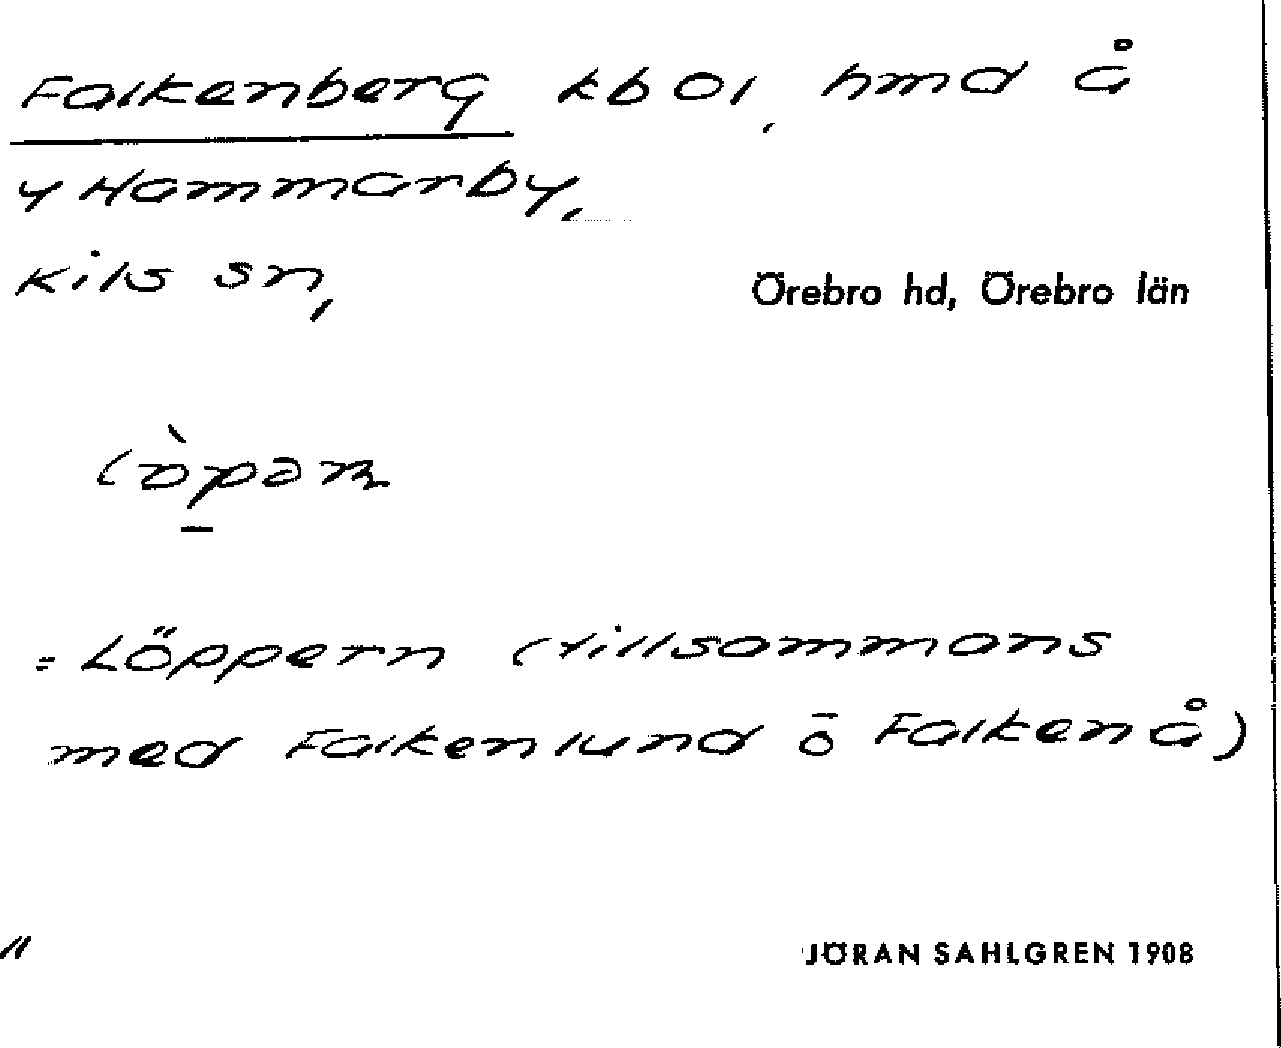 Falkenberg kbol, hmd å
y Hammarby,
Kils sn,
Örebro hd, Örebro län
= Löppern (tillsammans
med Falkenlund ō Falkenå)
"
JÖRAN SAHLGREN 1908